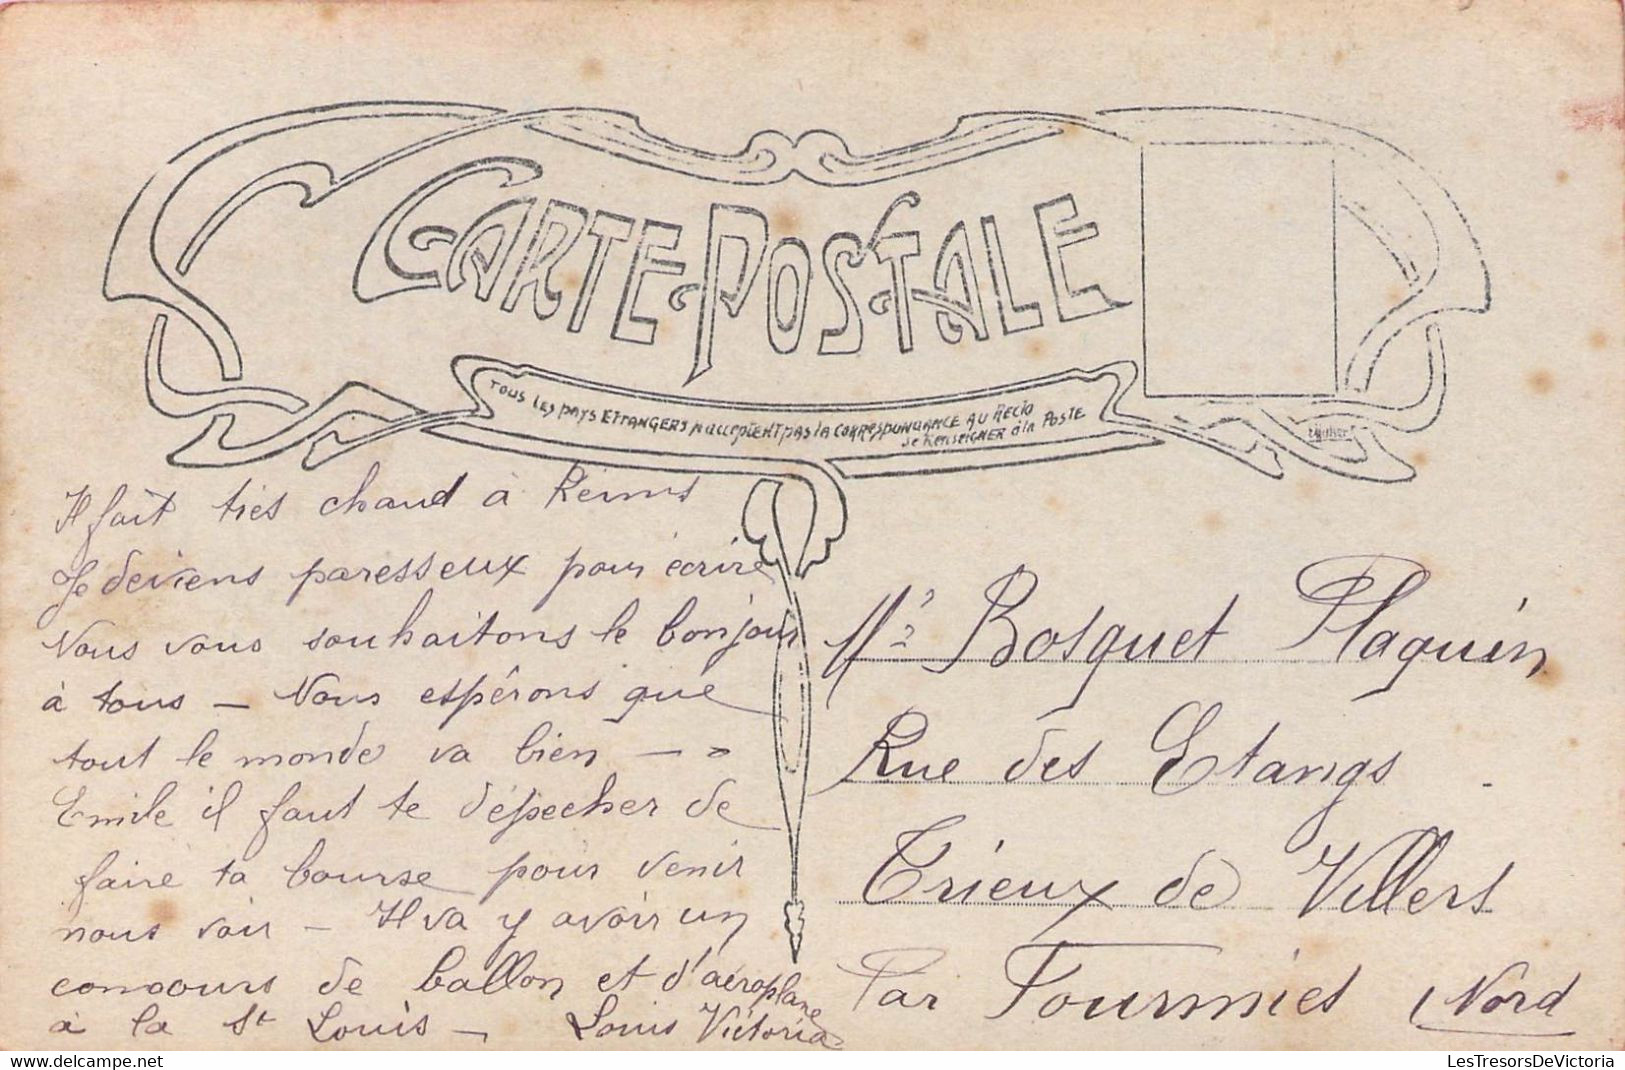 CARTE-POSTALE
TOUS LES PAYS ETRANGERS N'acceptENT pas la CORRESPONDANCE AU RECTO
se RENSEIGNER à la POSTE
Il fait très chaud à Reims
Je deviens paresseux pour écrire
Nous vous souhaitons le bonjour
à tous — Nous espérons que
tout le monde va bien — »
Emile il faut te dépecher de
faire ta bourse pour venir
nous voir — Il va y avoir un
concours de ballon et d'aéroplane
à la St Louis — Louis Victoria
Mr Bosquet Plaquin
Rue des Etangs
Trieux de Villers
Par Fourmies Nord
LesTresorsDeVictoria
www.delcampe.net